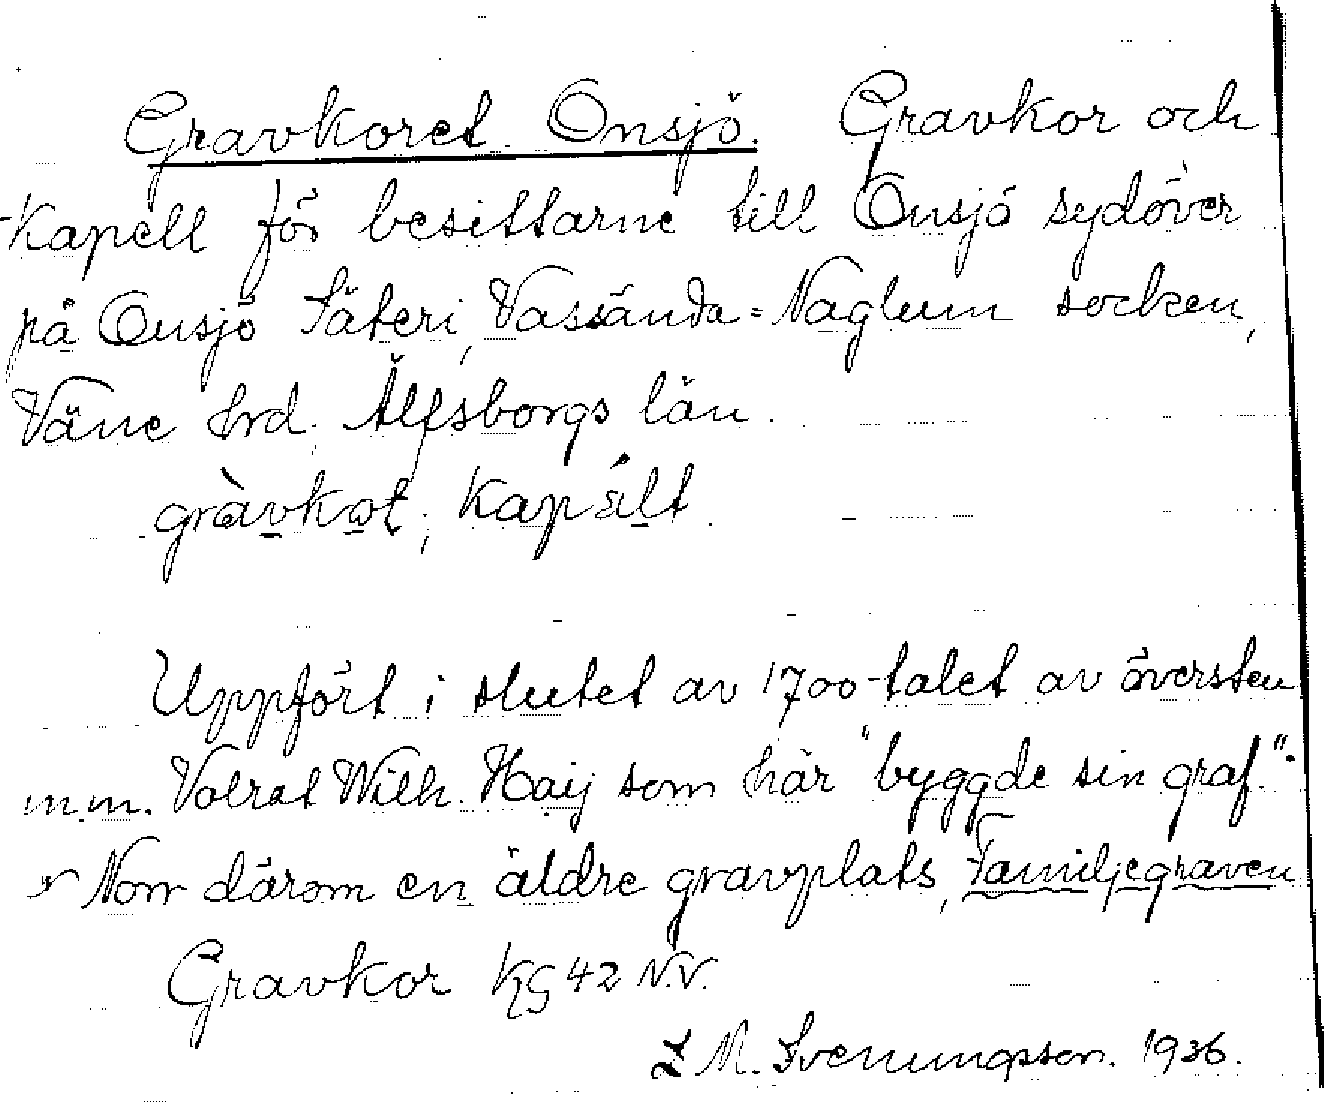 Gravkoret Onsjö. Gravkor och
Kapell för besittarne till Onsjö sydöver
på Onsjö Säteri, Vassända=Naglum socken,
Väne hrd. Älfsborgs län.
gràvkot; kapält.
Uppfört i slutet av 1700-talet av översten
m.m. Volrat Wilh. Haij som här "byggde sin graf".
Norr därom en äldre gravplats, Familjegraven
Gravkor KG 42 N.V.
M. Svenungsson. 1936.